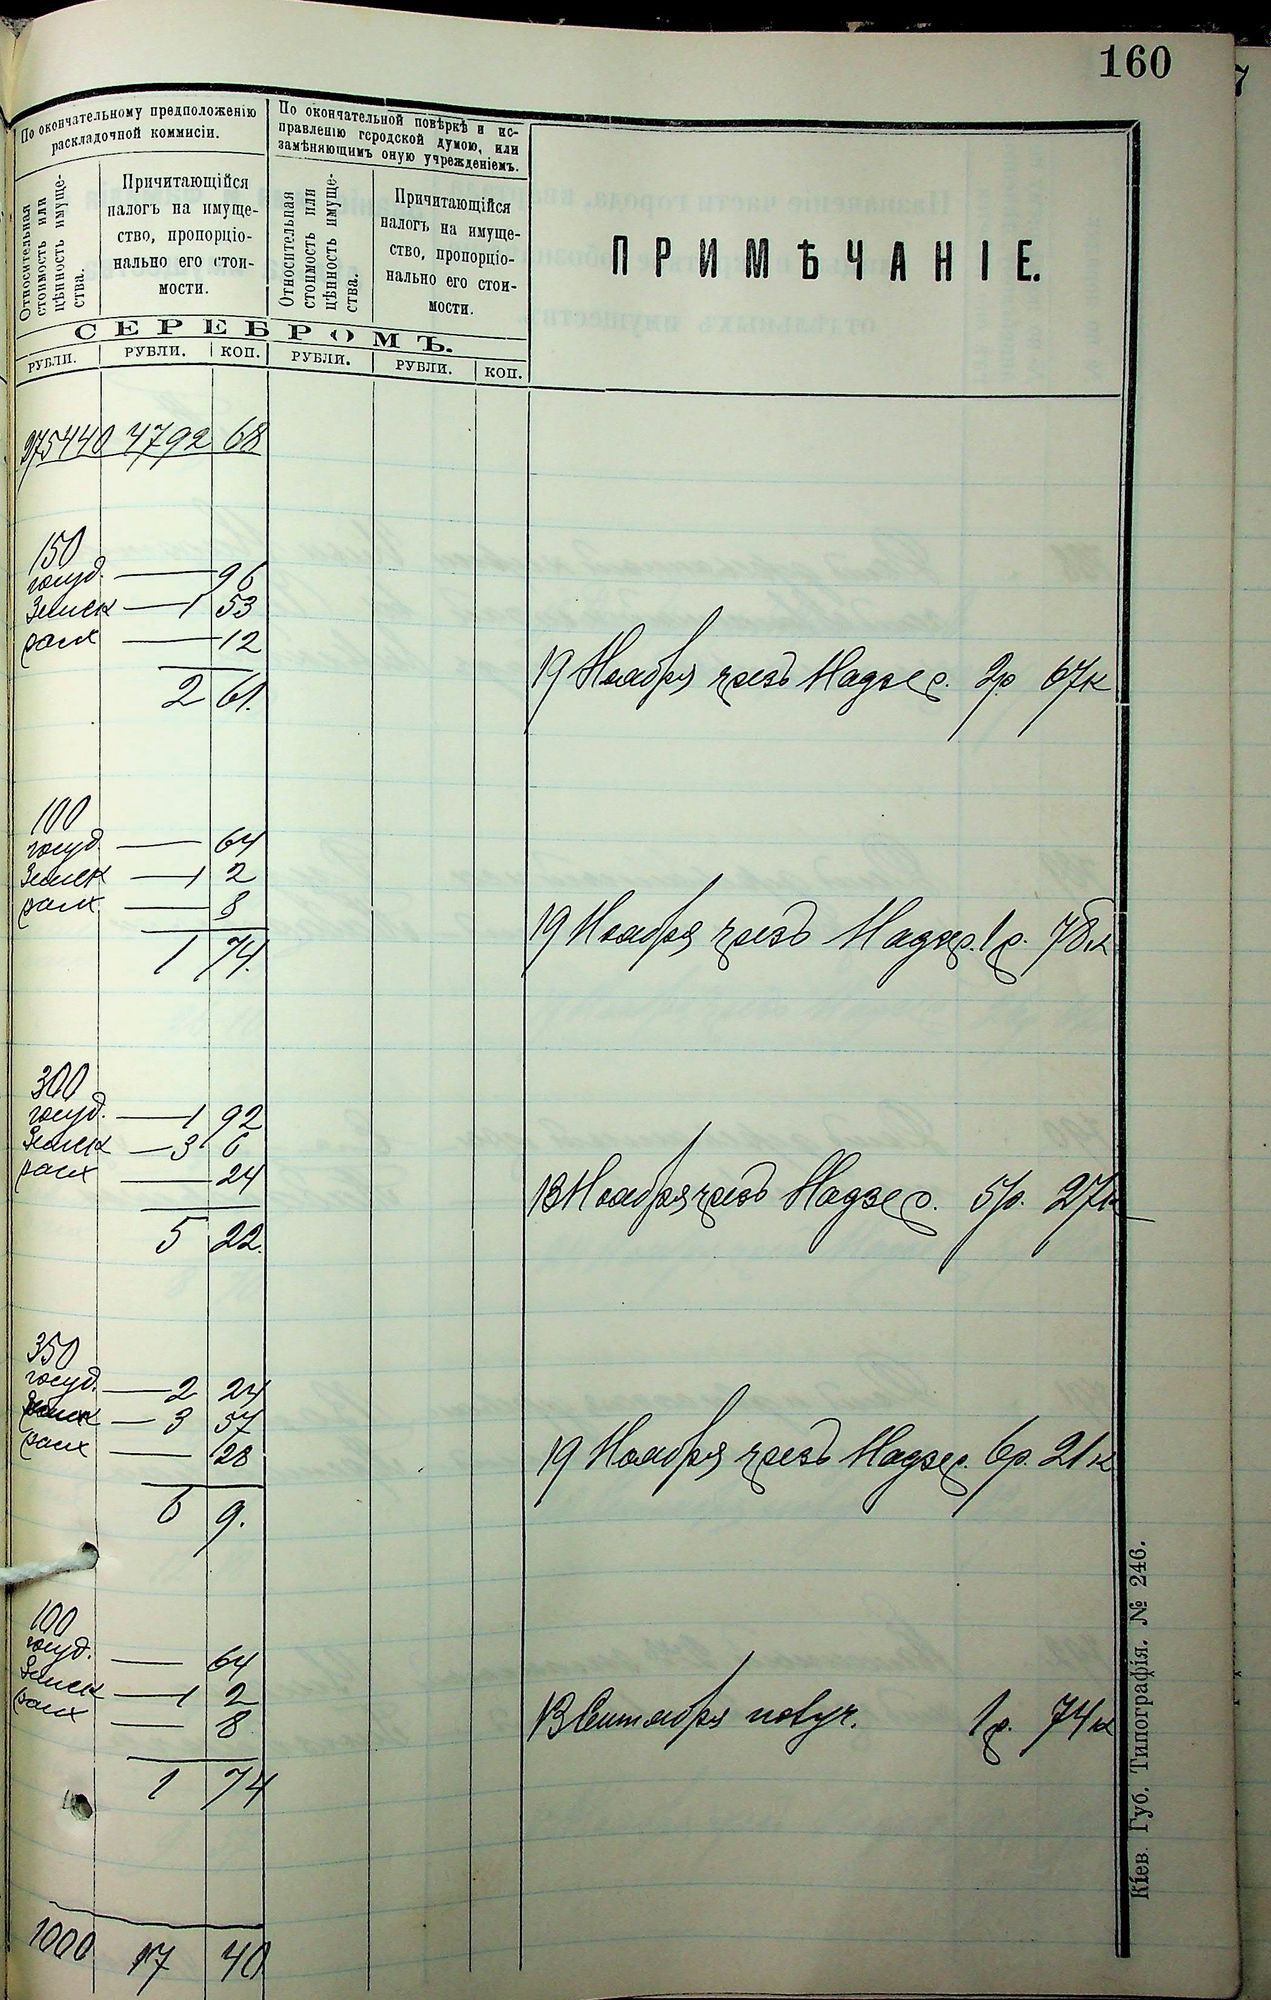 160
По окончательному предположенію
раскладочной коммисіи.
По окончательной повѣркѣ и ис-
правленію городской думою, или
замѣняющимъ оную учрежденіемъ.
Относительная
стоимость или
цѣнность имуще-
ства.
Причитающійся
налогъ на имуще-
ство, пропорціо-
нально его стои-
мости.
Относительная
стоимость или
цѣнность имуще-
ства.
Причитающійся
налогъ на имуще-
ство, пропорціо-
нально его стои-
мости.
ПРИМѢЧАНІЕ.
СЕРЕБРОМЪ.
РУБЛИ. РУБЛИ. КОП. РУБЛИ. РУБЛИ. КОП.
275440 4792 68
150
госуд. — 96
Земск — 1 53
расх — 12
2 61.
19 Ноября чрезъ Надзер. 2р 67к
100
госуд. — 64
Земск — 1 2
расх. — 8
1 74.
19 Ноября чрезъ Надзер. 1р. 78к
300
госуд. — 1 92
Земск — 3 6
расх — 24
5 22.
13 Ноября чрезъ Надзер. 5р. 27к
350
госуд. — 2 24
Земск — 3 57
расх — 28
6 9.
19 Ноября чрезъ Надзер. 6р. 21к
100
госуд. — 64
Земск — 1 2
расх — 8
1 74
13 Сентября 1р. 74к
1000 17 40
Кіев. Губ. Типографія. № 246.